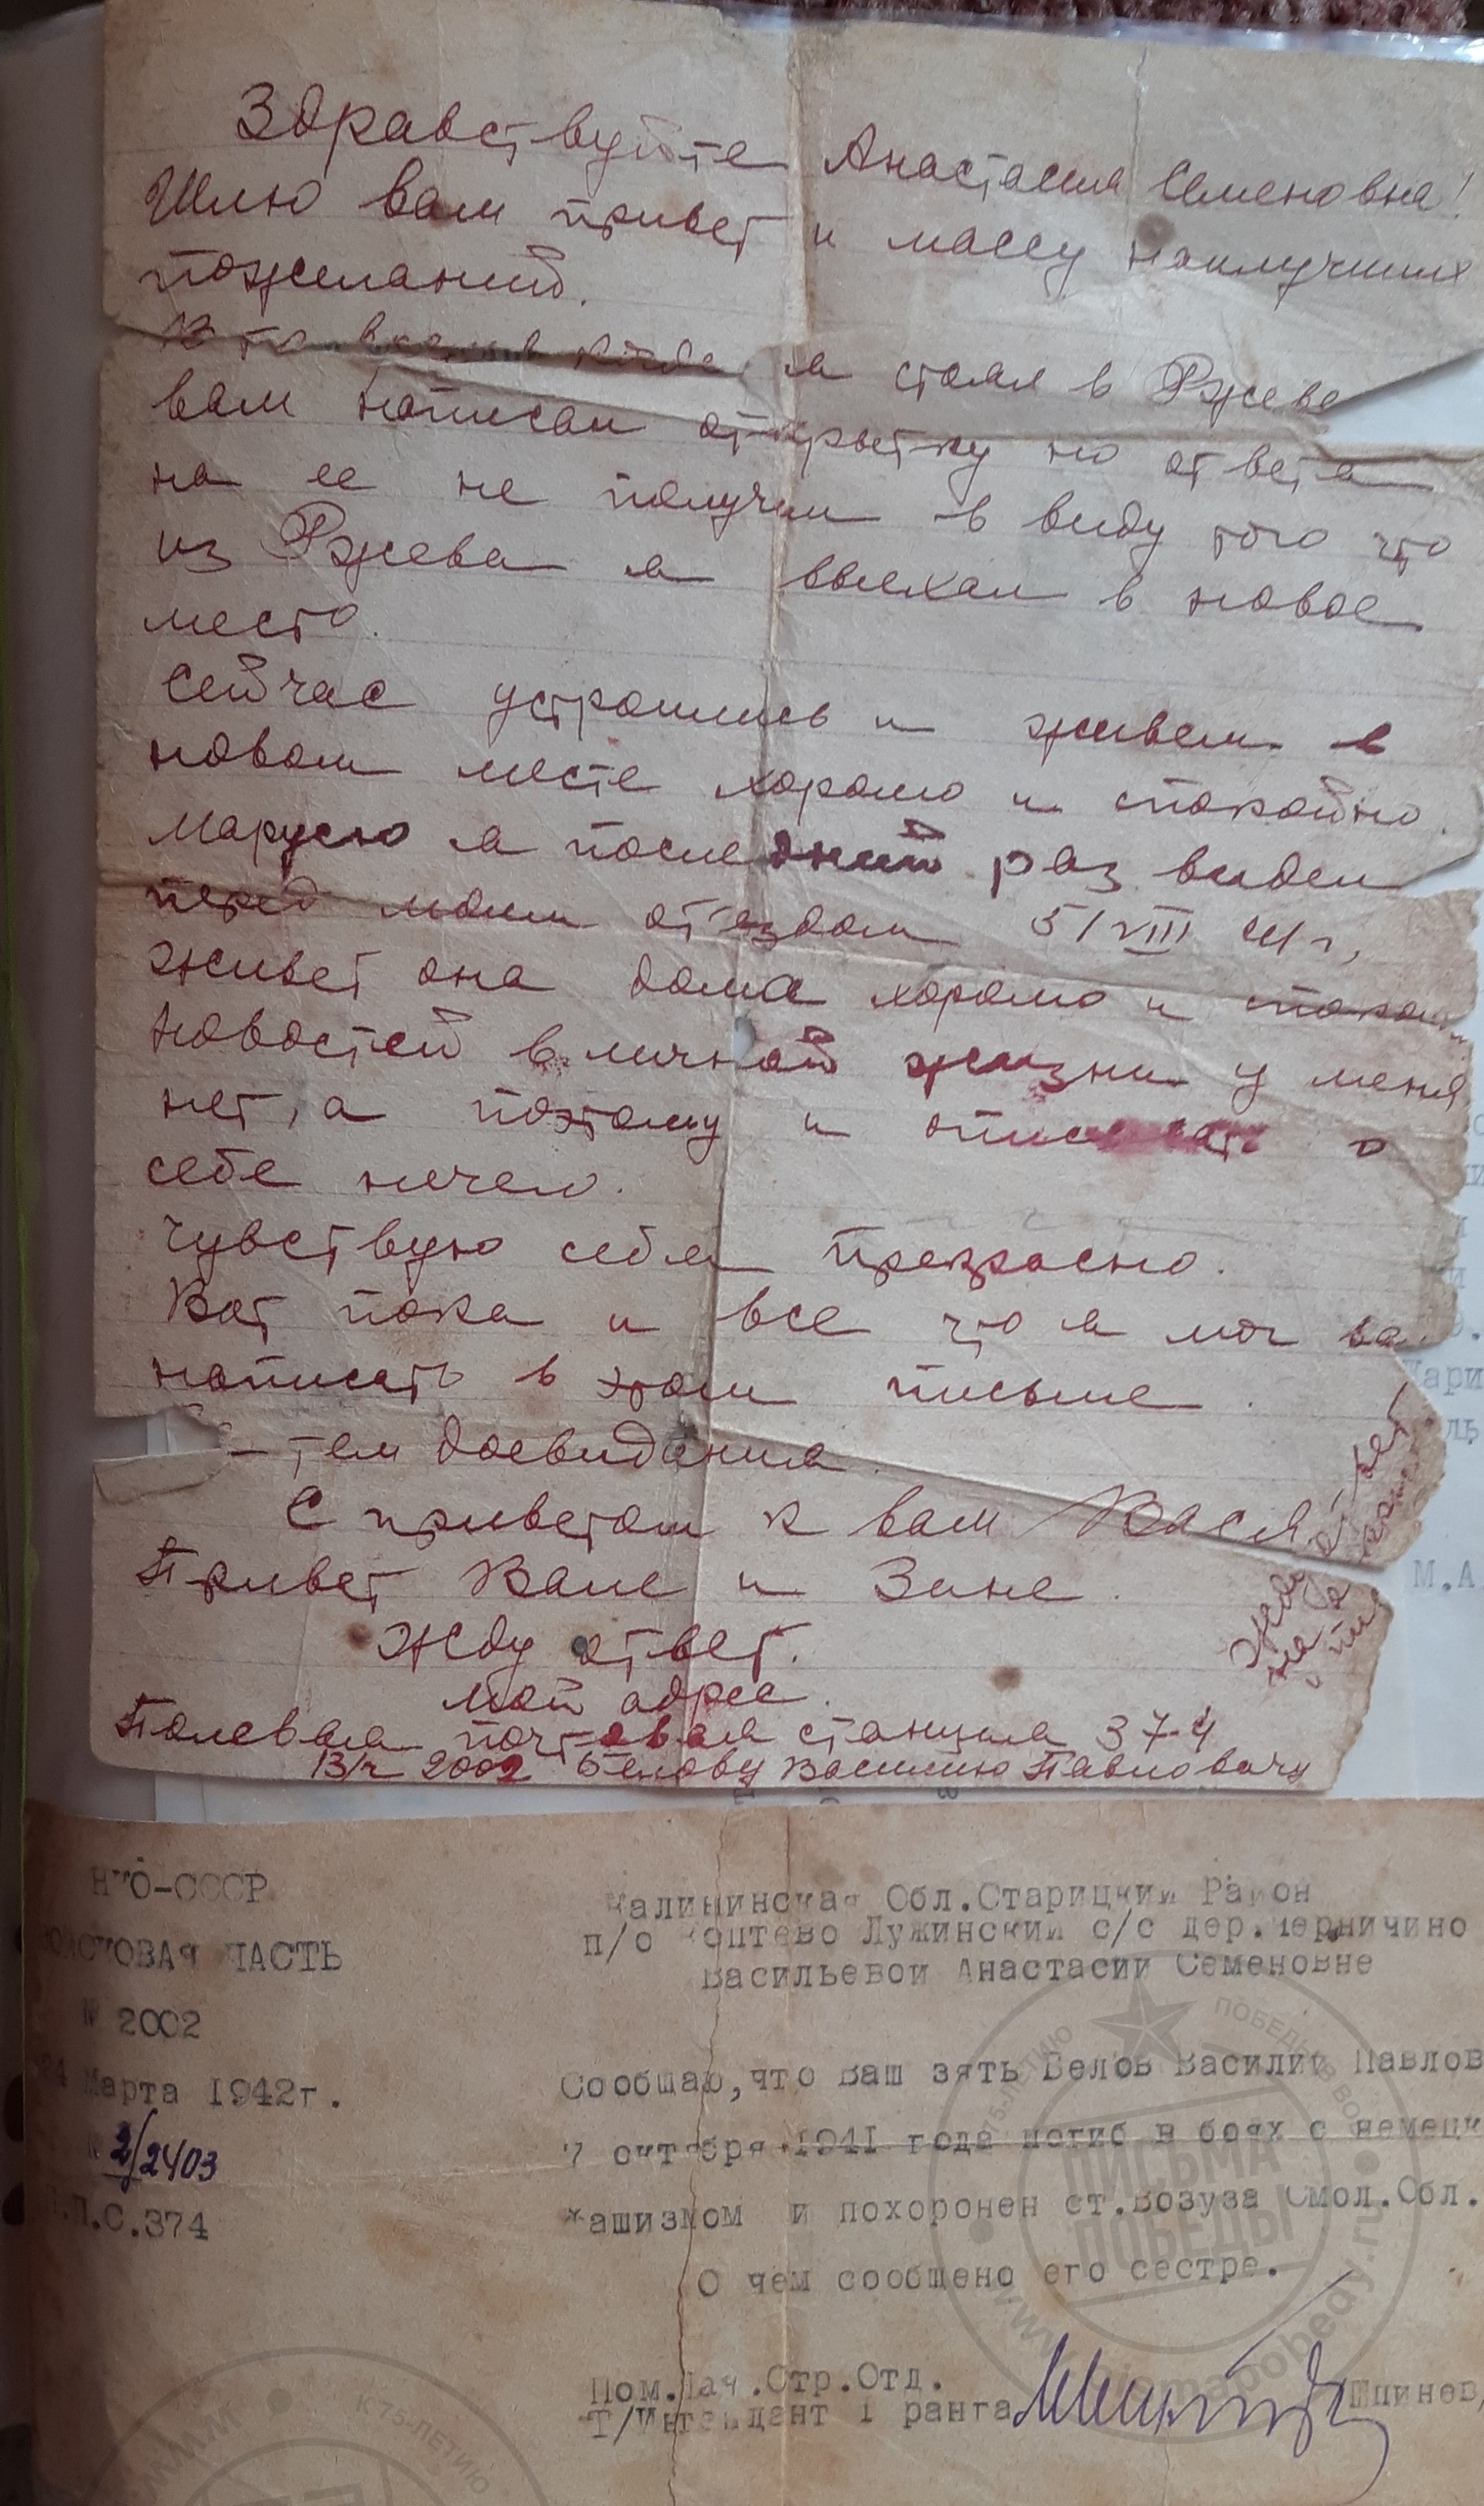 Здравствуйте Анастасия Семеновна!
Шлю вам привет и массу наилучших
пожеланий.
В то время когда я стоял в Ржеве
вам написал открытку но ответа
на ее не получил в виду того что
из Ржева я выехал в новое
место.
Сейчас устроились и живем в
новом месте хорошо и спокойно.
Марусю я последний раз видел
перед моим от'ездом 5/VIII 41 г,
живет она дома хорошо и
Новостей в личной жизни у меня
нет, а поэтому и описывать о
себе нечего.
Чувствую себя прекрасно.
Вот пока и все что я мог
написать в этом письме.
– тем досвидания.
С приветом к вам Вася
Привет Ване и Зине.
Жду ответ.
Мой адрес.
Полевая почтовая станция 374
В/ч 2002 Белову Василию Павловичу
Жду ответ
на
НКО-СССР
ЧАСТЬ
№ 2002
24 марта 1942г.
№ 2/2403
П.П.С.374
Калининская Обл.Старицкий Район
п/о Коптево Лужинский с/с дер.Черничино
Васильевой Анастасии Семеновне
Сообщаю,что ваш зять Белов Василий Павлов
7 октября 1941 года погиб в боях с немецк
фашизмом и похоронен ст.Возуза Смол.Обл.
О чем сообщено его сестре.
Пом.Нач.Стр.Отд.
Т/Интендант 1 ранга Шпинев
К 75-ЛЕТИЮ ПОБЕДЫ В ВО
ПИСЬМА
ПОБЕДЫ
www.pismapobedy.ru
www.
К 75-ЛЕТИЮ